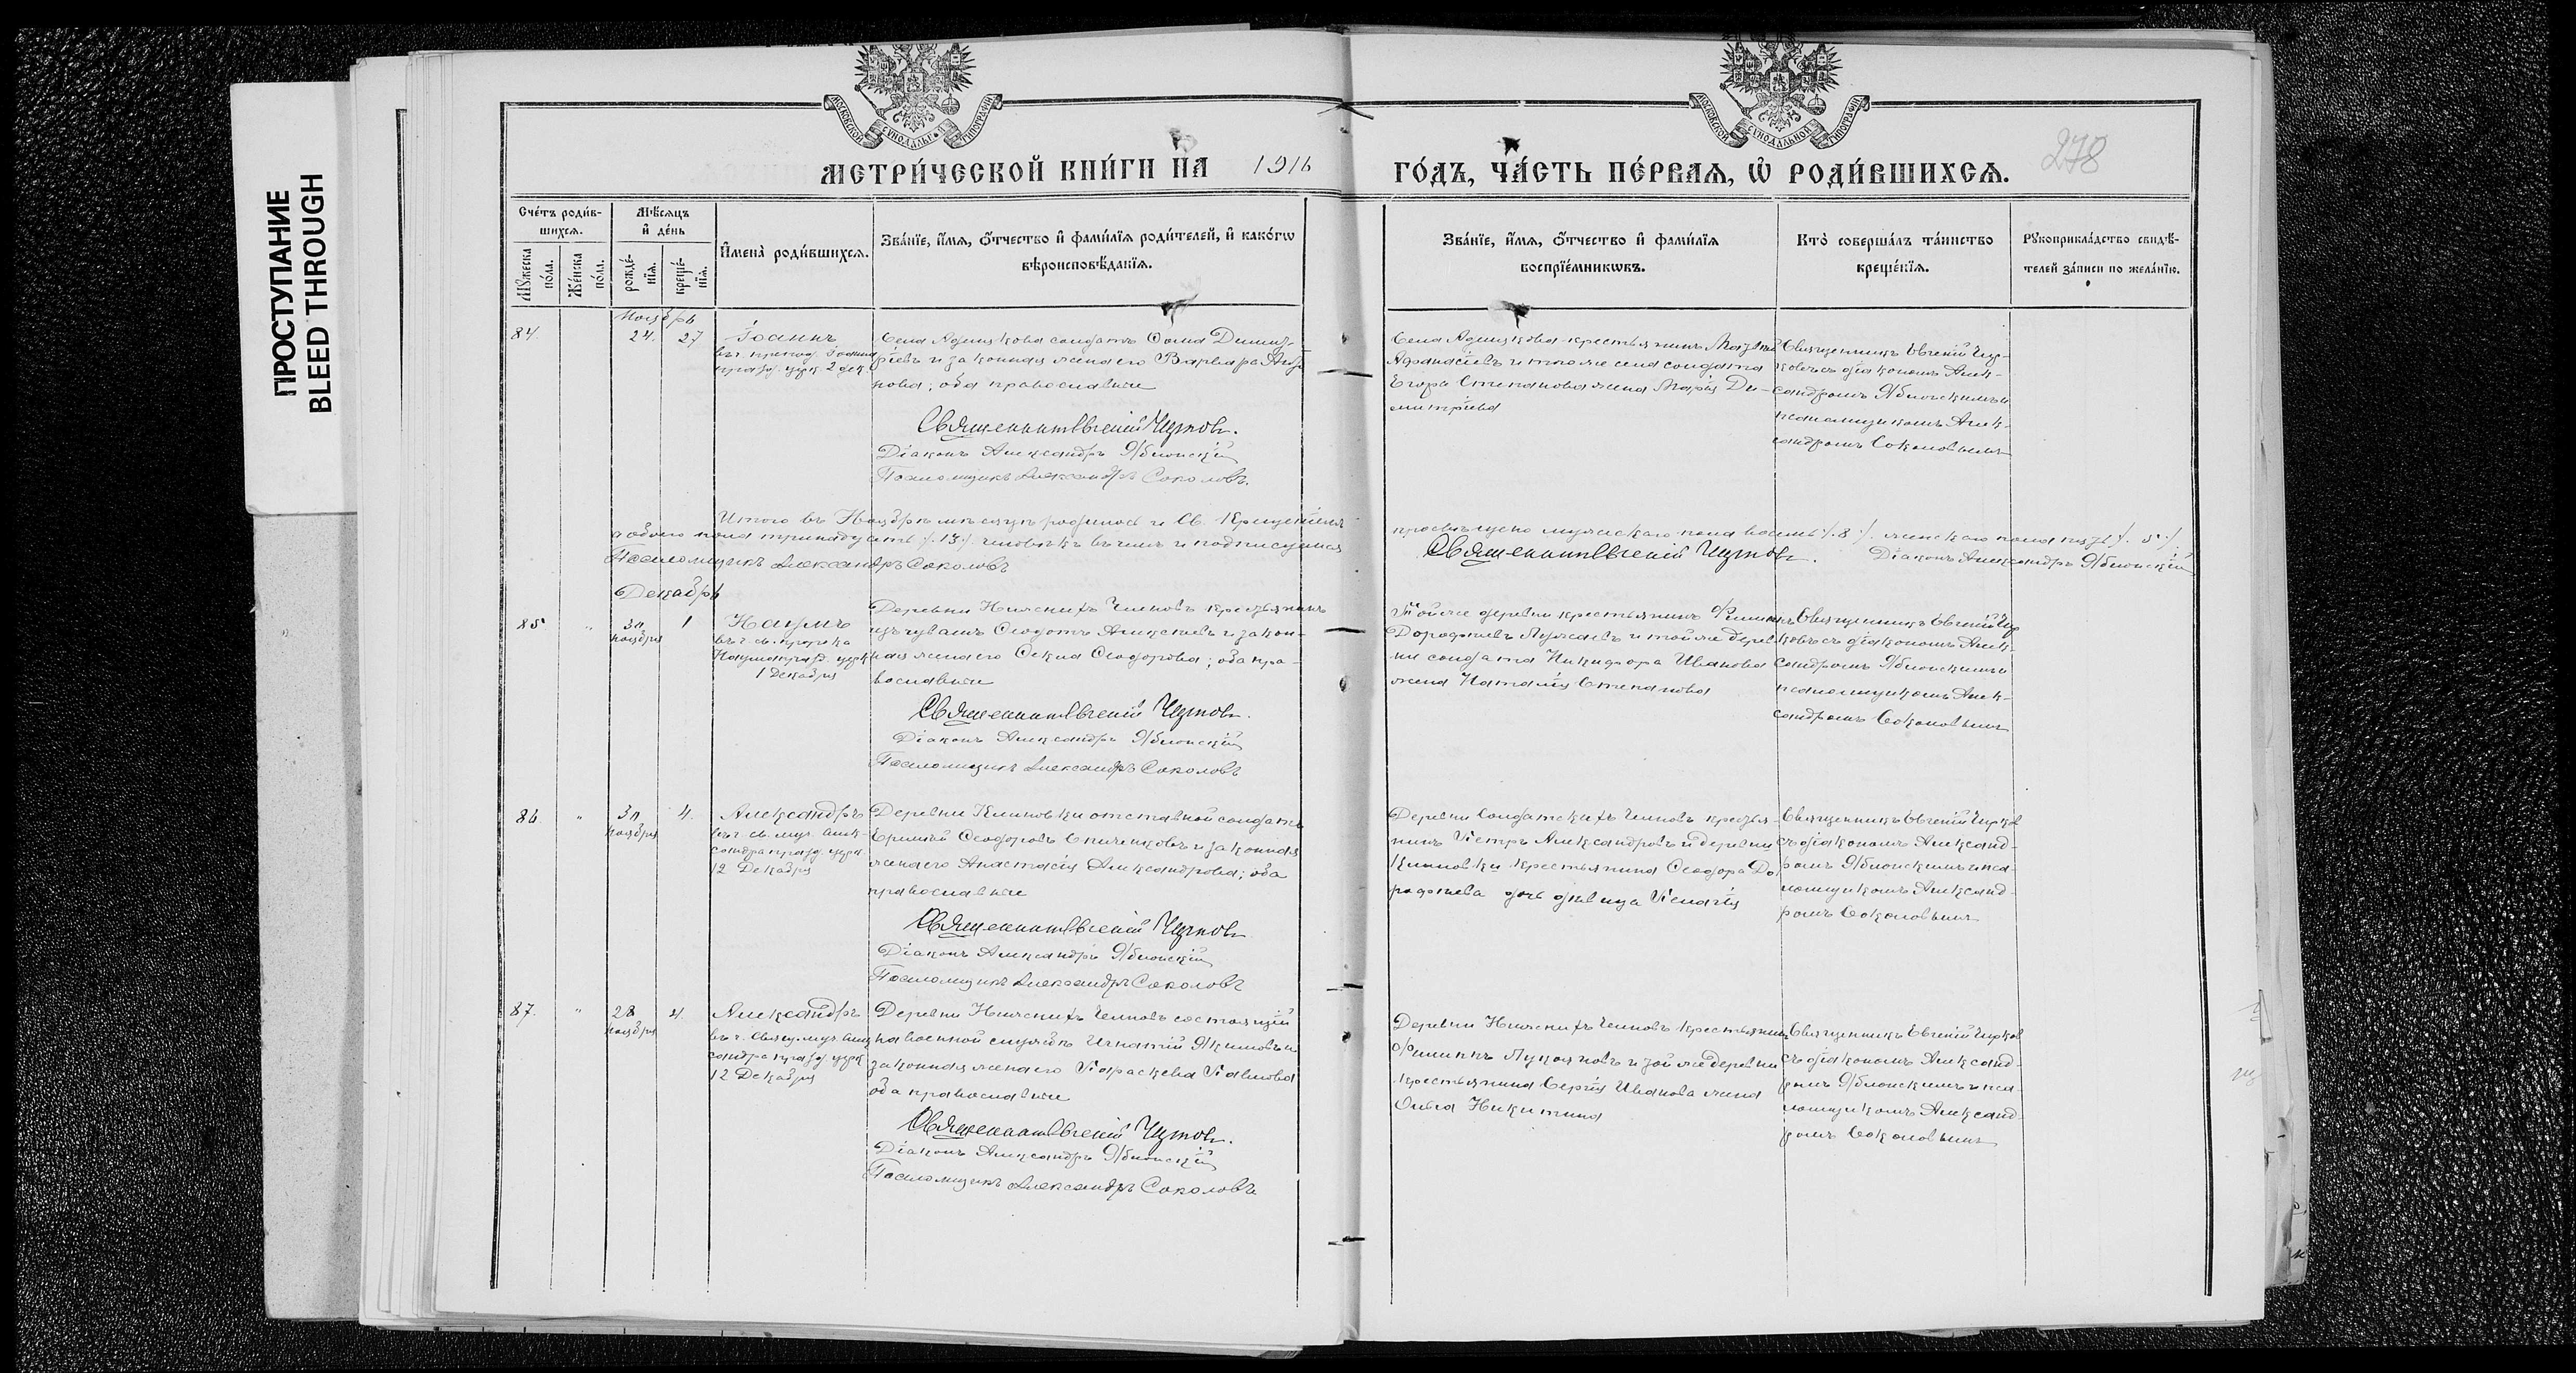 ПРОСТУПАНИЕ
BLEED THROUGH
МОСКОВСКОЙ СУНОДАЛЬНОЙ ТИПОГРАФІИ
МОСКОВСКОЙ СУНОДАЛЬНОЙ ТИПОГРАФІИ
МЕТРИ́ЧЕСКОЙ КНИ́ГИ НА 1916
ГО́ДЪ, ЧА́СТЬ ПЕ́РВАѦ, Ѡ РОДИ́ВШИХСѦ.
278
Сче́тъ роди́в-
шихсѧ.
Мꙋжеска по́ла.
Же́нска по́ла.
Мѣ́сѧцъ
и҆ де́нь
рожде́-
нїѧ.
креще́-
нїѧ.
И҆мена̀ роди́вшихсѧ.
Зва́нїе, и҆́мѧ, ѻ҆́тчество и҆ фами́лїѧ роди́телей, и҆ како́гѡ
вѣроисповѣ́данїѧ.
Зва́нїе, и҆́мѧ, ѻ҆́тчество и҆ фами́лїѧ
воспрїе́мникѡвъ.
Кто̀ соверша́лъ та́инство
креще́нїѧ.
Рꙋкоприкла́дство свидѣ́-
телей за́писи по жела́нїю.
Ноябрь
84. 24. 27 Іоаннъ
въ ч. препод. Іоанна
празд. церк. 2 дек.
Села Адишкова солдатъ Ѳома Димит-
ріевъ и законная жена его Варвара
нова; оба православные
Священникъ Евгеній Чирковъ.
Діаконъ Александръ Яблонскій
Псаломщикъ Александръ Соколовъ.
Села крестьянинъ
Афанасіевъ и того же села солдата
Егора Степанова жена Марія Ди-
митріева
Священникъ Евгеній Чир-
ковъ съ діакономъ Алек-
сандромъ Яблонскимъ и
псаломщикомъ Алек-
сандромъ Соколовымъ
Итого въ Ноябрѣ мѣсяцѣ родилось и Св. Крещеніемъ
просвѣщено мужескаго пола восемь /.8./. женскаго пола пять /. 5./
а обоего пола тринадцать /.13./ человѣкъ въ чемъ и подписуемся
Священникъ Евгеній Чирковъ. Діаконъ Александръ Яблонскій
Псаломщикъ Александръ Соколовъ
Декабрь
85 " 30 ноября 1 Наумъ
въ ч. св. пророка
Наума празд. церк.
1 Декабря
Деревни Нижнихъ Челновъ крестьянинъ
изъ чувашъ Ѳеодотъ Алексѣевъ и закон-
ная жена его Ѳекла Ѳеодорова; оба пра-
вославные
Священникъ Евгеній Чирковъ.
Діаконъ Александръ Яблонскій
Псаломщикъ Александръ Соколовъ
Той же деревни крестьянинъ Филиппъ
Дорофѣевъ и той же дерев-
ни солдата Никифора Иванова
жена Наталія Степанова
Священникъ Евгеній Чир-
ковъ съ діакономъ Алек-
сандромъ Яблонскимъ и
псаломщикомъ Алек-
сандромъ Соколовымъ
86 " 30 ноября 4. Александръ
въ ч. св. муч. Алек-
сандра празд. церк.
12 Декабря
Деревни Климовки отставной солдатъ
Ѳеодоровъ и законная
жена его Анастасія Александрова; оба
православные
Священникъ Евгеній Чирковъ
Діаконъ Александръ Яблонскій
Псаломщикъ Александръ Соколовъ
Деревни Солдатскихъ Челновъ крестья-
нинъ Петръ Александровъ и деревни
Климовки крестьянина Ѳеодора До-
рофѣева дочь дѣвица Пелагія
Священникъ Евгеній Чирковъ
съ діакономъ Александ-
ромъ Яблонскимъ и пса-
ломщикомъ Александ-
ромъ Соколовымъ
87. " 28 ноября 4. Александръ
въ ч. Свящ. муч. Алек-
сандра празд. церк.
12 Декабря
Деревни Нижнихъ Челновъ состоящій
на военной службѣ Игнатій Якимовъ и
законная жена его Параскева Павлова
оба православные
Священникъ Евгеній Чирковъ.
Діаконъ Александръ Яблонскій
Псаломщикъ Александръ Соколовъ
Деревни Нижнихъ Челновъ крестьянинъ
Филиппъ Лукояновъ и той же деревни
крестьянина Сергія Иванова жена
Никитина
Священникъ Евгеній Чирковъ
съ діакономъ Александ-
ромъ Яблонскимъ и пса-
ломщикомъ Александ-
ромъ Соколовымъ